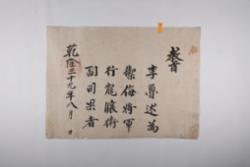 教旨
李尊述為
禦侮將軍
行龍驤衛
副司果者
乾隆三十九年八月 日